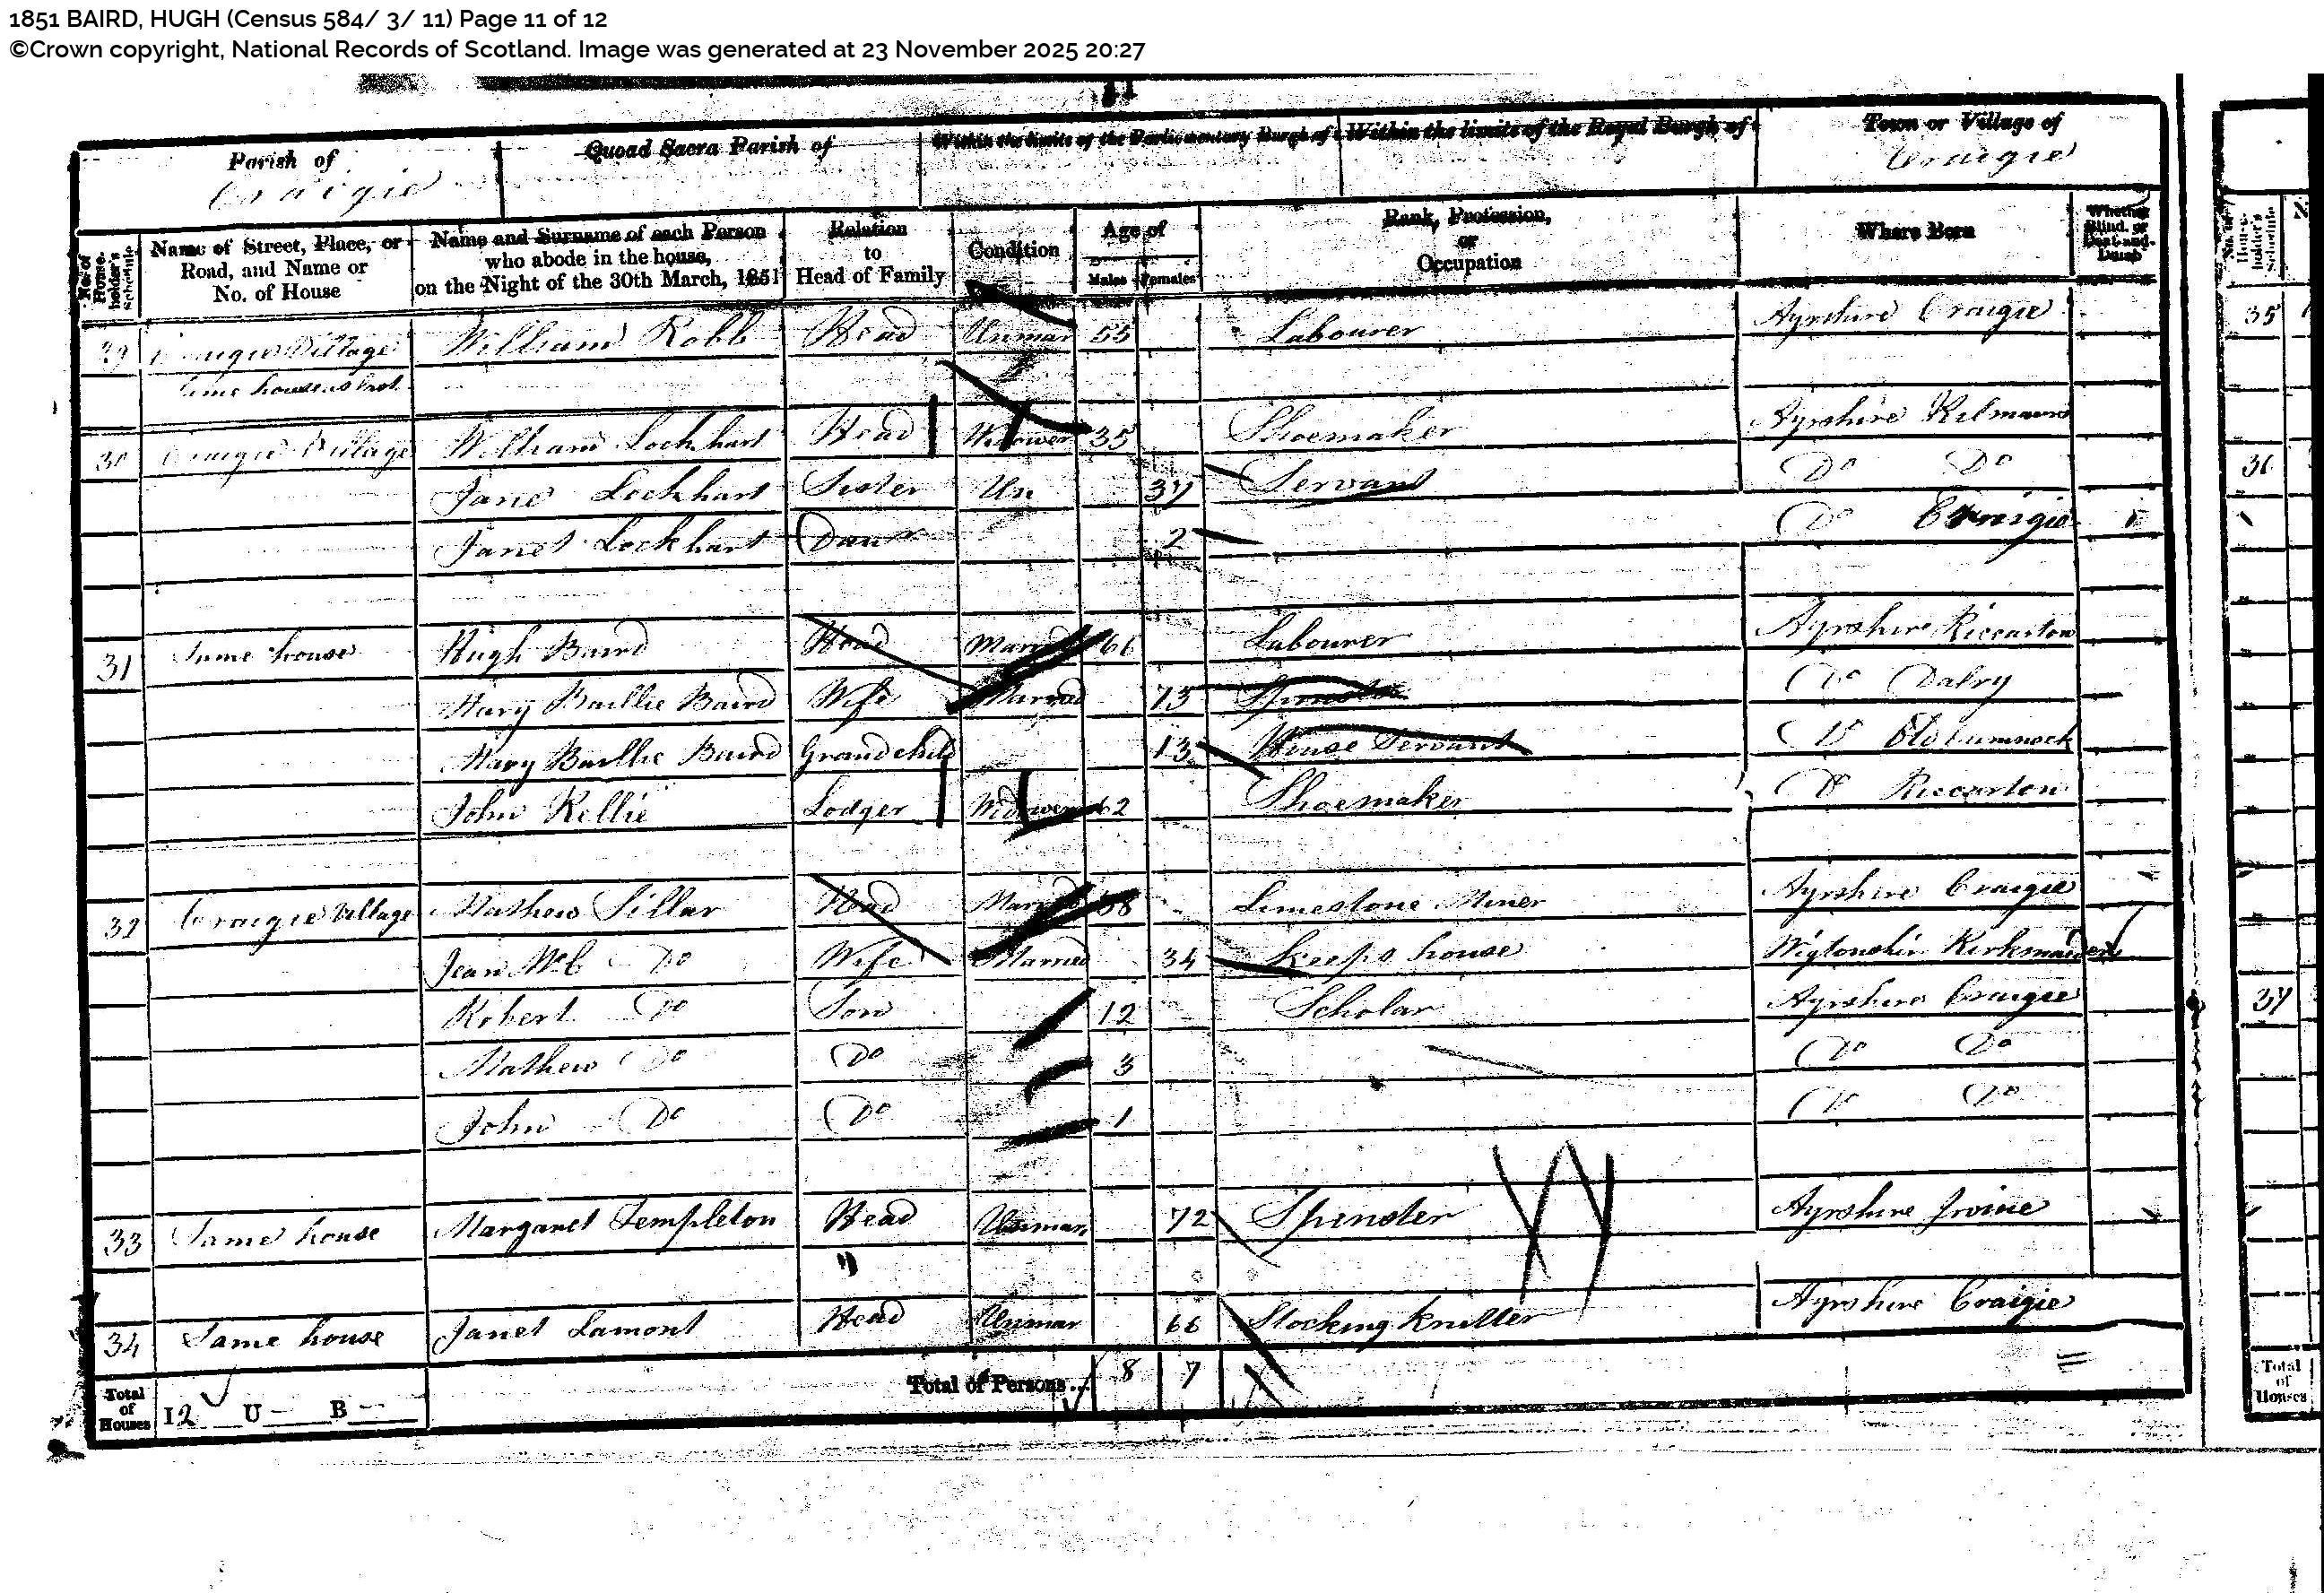 1851 BAIRD, HUGH (Census 584/ 3/ 11) Page 11 of 12
©Crown copyright, National Records of Scotland. Image was generated at 23 November 2025 20:27
11
Parish of Quoad Sacra Parish of Within the limits of the Parliamentary Burgh of Within the limits of the Royal Burgh of Town or Village of
Craigie Craigie
No. of House-holder's Schedule Name of Street, Place, or Road, and Name or No. of House Name and Surname of each Person who abode in the house, on the Night of the 30th March, 1851 Relation to Head of Family Condition Age of Males Females Rank, Profession, or Occupation Where Born Whether Blind, or Deaf-and-Dumb
29 Craigie Village William Robb Head Unmar 55 Labourer Ayrshire Craigie
Same house as last
30 Craigie Village William Lockhart Head Widower 35 Shoemaker Ayrshire Kilmaurs
Jane Lockhart Sister Un 37 Servant Do Do
Janet Lockhart Daur 2 Do Craigie
31 Same house Hugh Baird Head Married 66 Labourer Ayrshire Riccarton
Mary Baillie Baird Wife Married 73 Do Dalry
Mary Baillie Baird Grandchild 13 House Servant Do Old Cumnock
John Kellie Lodger Widower 62 Shoemaker Do Riccarton
32 Craigie Village Mathew Sillar Head Married 38 Limestone Miner Ayrshire Craigie
Jean McC Do Wife Married 34 Keeps house Wigtonshir Kirkmaiden
Robert Do Son 12 Scholar Ayrshire Craigie
Mathew Do Do 3 Do Do
John Do Do 1 Do Do
33 Same house Margaret Templeton Head Unmar. 72 Spinster Ayrshire Irvine
34 Same house Janet Lamont Head Unmar 66 Stocking Knitter Ayrshire Craigie
Total of Houses I 2 U – B – Total of Persons... 8 7
No. of House-holder's Schedule N
35
36
37
Total of Houses